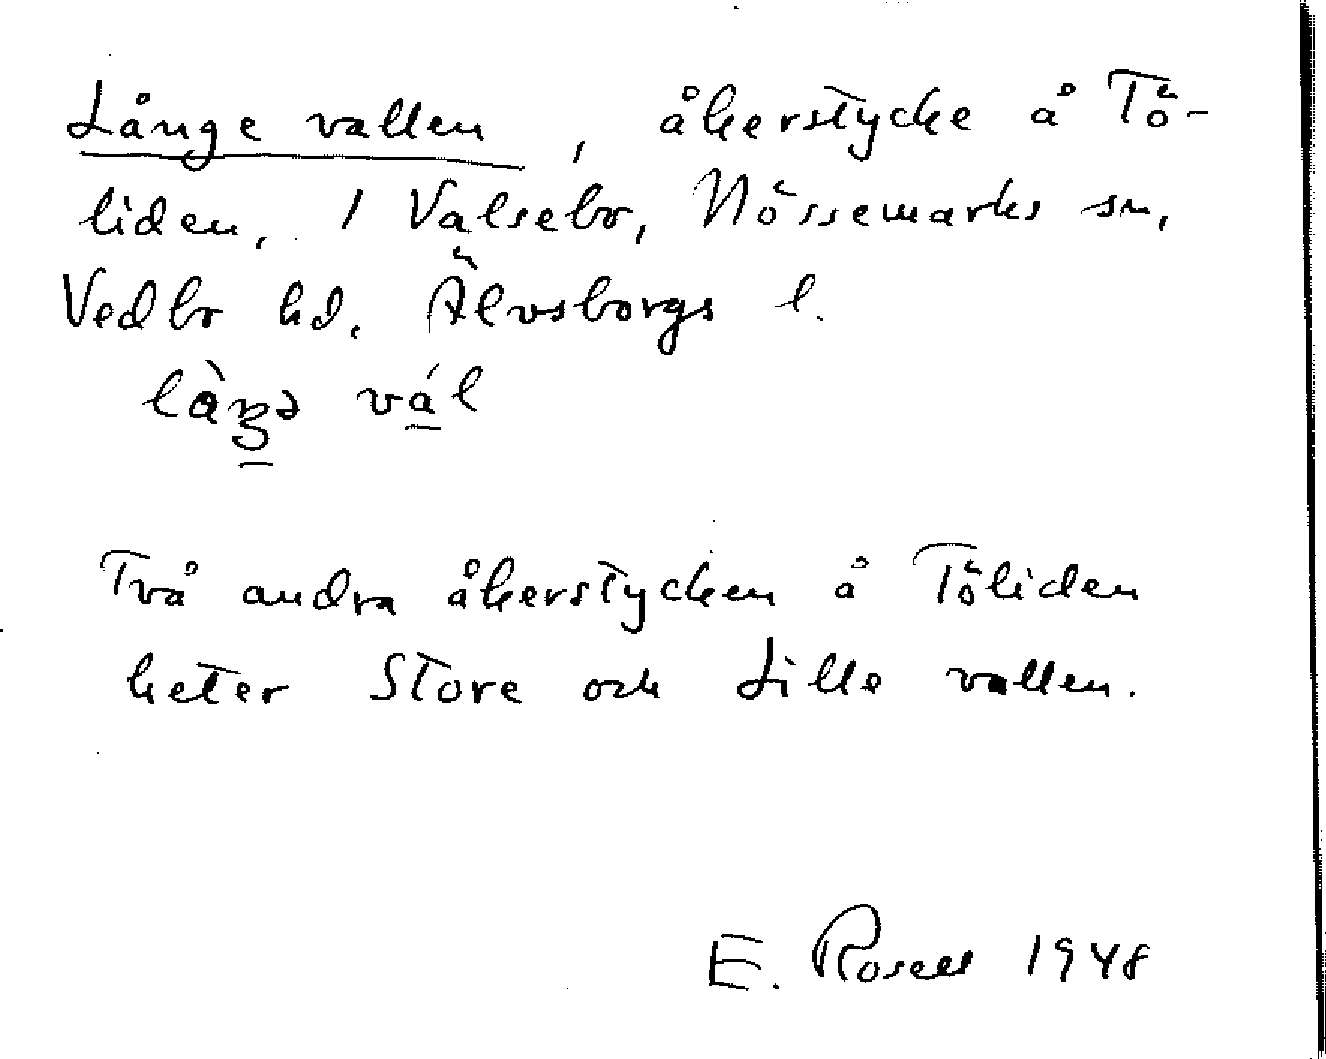 Långe vallen, åkerstycke å Tö-
liden, 1 Valsebo, Nössemarks sn,
Vedbo hd. Älvsborgs l.
làŋə vál
Två andra åkerstycken å Töliden
heter Store och Lille vallen.
E. Rosell 1948